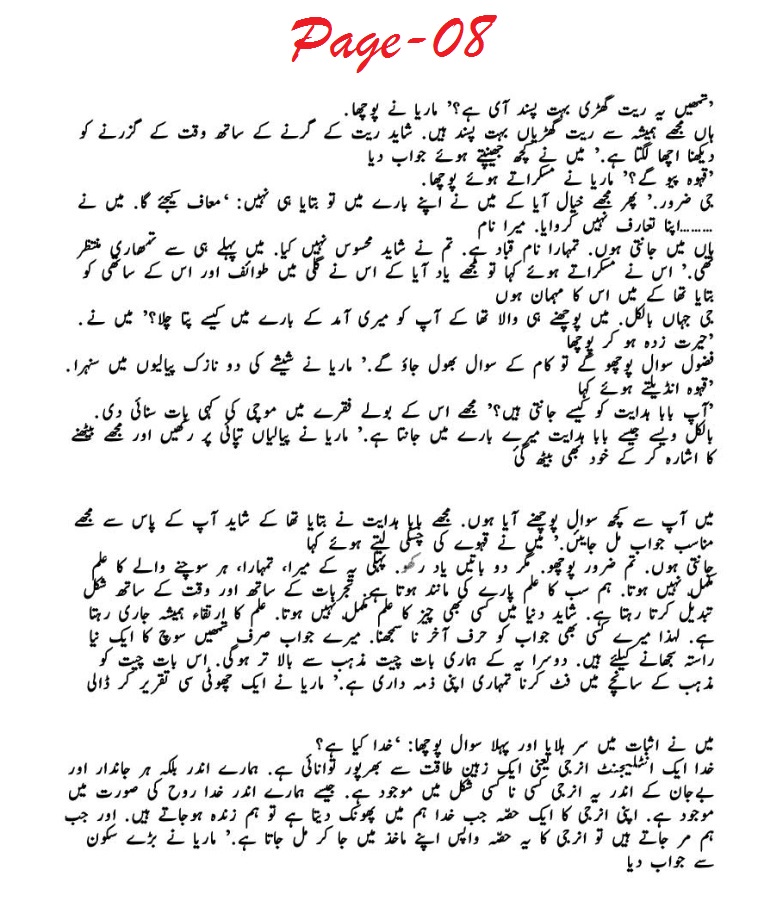 Page-08
’تمھیں یہ ریت گھڑی بہت پسند آی ہے؟’ ماریا نے پوچھا.
ہاں مجھے ہمیشہ سے ریت گھڑیاں بہت پسند ہیں. شاید ریت کے گرنے کے ساتھ وقت کے گزرنے کو
دیکھنا اچھا لگتا ہے.’ میں نے کچھ جھینپتے ہوئے جواب دیا
’قہوہ پیو گے؟’ ماریا نے مسکراتے ہوئے پوچھا.
جی ضرور.’ پھر مجھے خیال آیا کے میں نے اپنے بارے میں تو بتایا ہی نہیں: ‘معاف کیجئے گا. میں نے
اپنا تعارف نہیں کروایا. میرا نام………
ہاں میں جانتی ہوں. تمہارا نام قباد ہے. تم نے شاید محسوس نہیں کیا. میں پہلے ہی سے تمھاری منتظر
تھی.’ اس نے مسکراتے ہوئے کہا تو مجھے یاد آیا کے اس نے گلی میں طوائف اور اس کے ساتھی کو
بتایا تھا کے میں اس کا مہمان ہوں
جی جہاں بالکل. میں پوچھنے ہی والا تھا کے آپ کو میری آمد کے بارے میں کیسے پتا چلا؟’ میں نے.
’حیرت زدہ ہو کر پوچھا
فضول سوال پوچھو گے تو کام کے سوال بھول جاؤ گے.’ ماریا نے شیشے کی دو نازک پیالیوں میں سنہرا.
’قہوہ انڈیلتے ہوئے کہا
’آپ بابا ہدایت کو کیسے جانتی ہیں؟’ مجھے اس کے بولے فقرے میں موچی کی کہی بات سنائی دی.
بالکل ویسے جیسے بابا ہدایت میرے بارے میں جانتا ہے.’ ماریا نے پیالیاں تپائی پر رکھیں اور مجھے بیٹھنے
کا اشارہ کر کے خود بھی بیٹھ گئ
میں آپ سے کچھ سوال پوچھنے آیا ہوں. مجھے بابا ہدایت نے بتایا تھا کے شاید آپ کے پاس سے مجھے
مناسب جواب مل جایئں.’ میں نے قہوے کی چسکی لیتے ہوئے کہا
جانتی ہوں. تم ضرور پوچھو. مگر دو باتیں یاد رکھو. پہلی یہ کے میرا، تمہارا، ہر سوچنے والے کا علم
مکمل نہیں ہوتا. ہم سب کا علم پارے کی مانند ہوتا ہے. تجربات کے ساتھ اور وقت کے ساتھ شکل
تبدیل کرتا رہتا ہے. شاید دنیا میں کسی بھی چیز کا علم مکمل نہیں ہوتا. علم کا ارتقاء ہمیشہ جاری رہتا
ہے. لہذا میرے کسی بھی جواب کو حرف آخر نا سمجھنا. میرے جواب صرف تمھیں سوچ کا ایک نیا
راستہ سجھانے کیلئے ہیں. دوسرا یہ کے ہماری بات چیت مذہب سے بالا تر ہوگی. اس بات چیت کو
مذہب کے سانچے میں فٹ کرنا تمہاری اپنی ذمہ داری ہے.’ ماریا نے ایک چھوٹی سی تقریر کر ڈالی
میں نے اثبات میں سر ہلایا اور پہلا سوال پوچھا: ‘خدا کیا ہے؟
خدا ایک انٹلیجنٹ انرجی یعنی ایک زہین طاقت سے بھرپور توانائی ہے. ہمارے اندر بلکہ ہر جاندار اور
بےجان کے اندر یہ انرجی کسی نا کسی شکل میں موجود ہے. جیسے ہمارے اندر خدا روح کی صورت میں
موجود ہے. اپنی انرجی کا ایک حصّہ جب خدا ہم میں پھونک دیتا ہے تو ہم زندہ ہوجاتے ہیں. اور جب
ہم مر جاتے ہیں تو انرجی کا یہ حصّہ واپس اپنے ماخذ میں جا کر مل جاتا ہے.’ ماریا نے بڑے سکون
سے جواب دیا